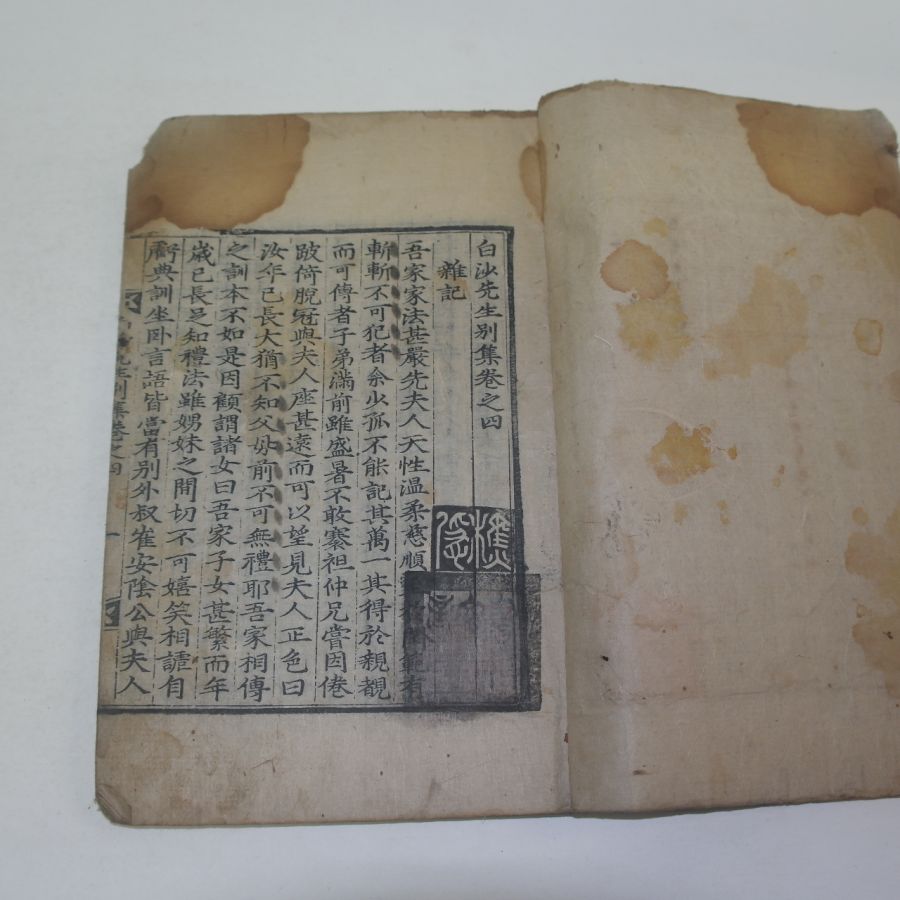 白沙先生別集卷之四
雜記
吾家家法甚嚴先夫人天性溫柔慈順 範有
斬斬不可犯者余少孤不能記其萬一其得於親覩
而可傳者子弟滿前雖盛暑不敢褰袒仲兄嘗因倦
跛倚脫冠與夫人座甚遠而可以望見夫人正色曰
汝年已長大猶不知父母前不可無禮耶吾家相傳
之訓本不如是因顧謂諸女曰吾家子女甚繁而年
歲已長足知禮法雖娚妹之間切不可嬉笑相謔自
爾典訓坐臥言語皆當有別外叔崔安陰公與夫人
先生別集卷之四
一
樵